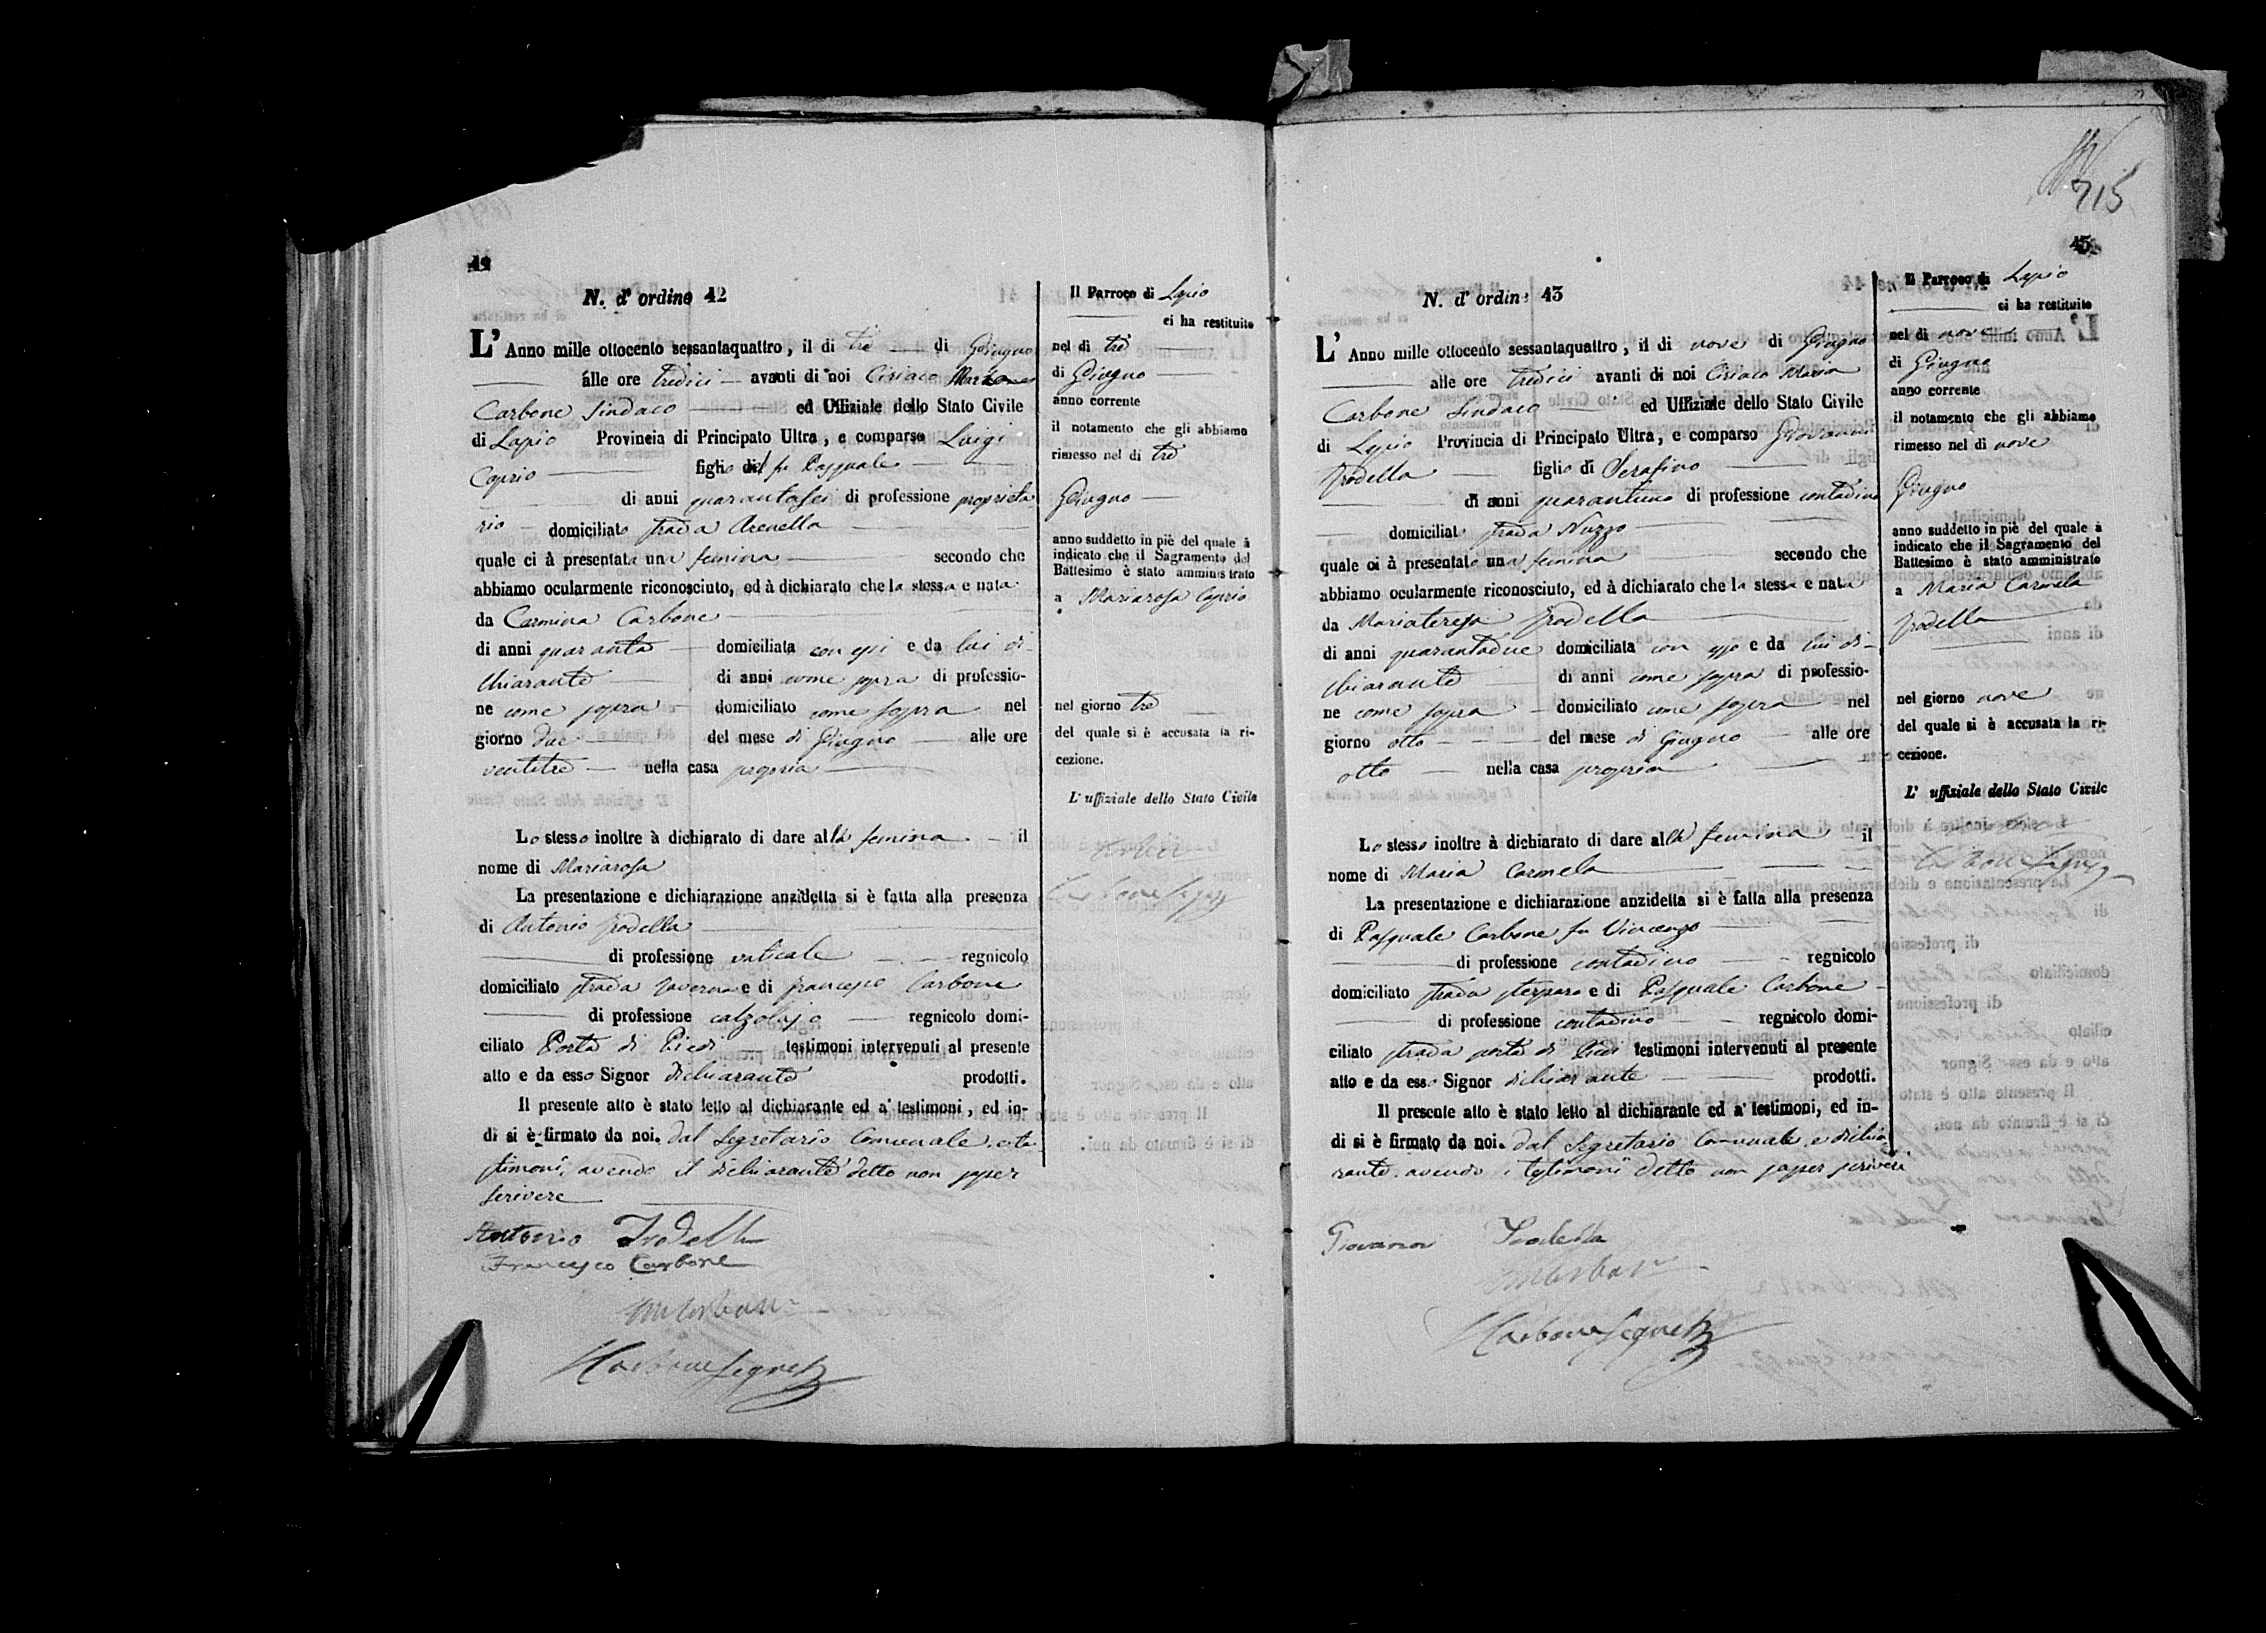 42
N. d' ordine 42
L' Anno mille ottocento sessantaquattro, il di tre di Giugno
alle ore tredici avanti di noi Ciriaco Maria
Carbone Sindaco ed Uffiziale dello Stato Civile
di Lapio Provincia di Principato Ultra, e comparso Luigi
Caprio figlio del fu Pasquale
di anni quarantasei di professione proprieta
rio domiciliato strada Arenella
quale ci à presentata una femina secondo che
abbiamo ocularmente riconosciuto, ed à dichiarato che la stessa e nata
da Carmina Carbone
di anni quaranta domiciliata con essi e da lui di-
chiarante di anni come sopra di professio-
ne come sopra domiciliato come sopra nel
giorno due del mese di Giugno alle ore
ventitre nella casa propria
Lo stesso inoltre à dichiarato di dare alla femina il
nome di Mariarosa
La presentazione e dichiarazione anzidetta si è fatta alla presenza
di Antonio Jrodella
di professione vaticale regnicolo
domiciliato strada Taverna e di Francesco Carbone
di professione calzolajo regnicolo domi-
ciliato Porta di Piedi testimoni intervenuti al presente
atto e da esso Signor dichiarante prodotti.
Il presente atto è stato letto al dichiarante ed a' testimoni, ed in-
di si è firmato da noi. dal Segretario Comunale, e te
stimoni, avendo il dichiarante detto non saper
scrivere
Antonio Jrodella
Francesco Carbone
Carbone Segret
Il Parroco di Lapio
ci ha restituito
nel di tre
di Giugno
anno corrente
il notamento che gli abbiamo
rimesso nel di tre
Giugno
anno suddetto in piè del quale à
indicato che il Sagramento del
Battesimo è stato amministrato
a Mariarosa Caprio
nel giorno tre
del quale si è accusata la ri-
cezione.
L' uffiziale dello Stato Civile
Carbone Segret
715
N. d' ordine 43
L' Anno mille ottocento sessantaquattro, il di nove di Giugno
alle ore tredici avanti di noi Ciriaco Maria
Carbone Sindaco ed Uffiziale dello Stato Civile
di Lapio Provincia di Principato Ultra, e comparso Giovanni
Jrodella figlio di Serafino
di anni quarantuno di professione contadino
domiciliato strada Nuzzo
quale ci à presentato una femina secondo che
abbiamo ocularmente riconosciuto, ed à dichiarato che la stessa e nata
da Mariateresa Jrodella
di anni quarantadue domiciliata con esso e da lui di-
chiarante di anni come sopra di professio-
ne come sopra domiciliato come sopra nel
giorno otto del mese di Giugno alle ore
otto nella casa propria
Lo stesso inoltre à dichiarato di dare alla femina il
nome di Maria Carmela
La presentazione e dichiarazione anzidetta si è fatta alla presenza
di Pasquale Carbone fu Vincenzo
di professione contadino regnicolo
domiciliato strada e di Pasquale Carbone
di professione contadino regnicolo domi-
ciliato strada porta di Piedi testimoni intervenuti al presente
atto e da esso Signor dichiarante prodotti.
Il presente atto è stato letto al dichiarante ed a' testimoni, ed in-
di si è firmato da noi. dal Segretario Comunale, e dichia
rante, avendo i testimoni detto non saper scrivere
Giovanni Jrodella
Carbone Segret
Il Parroco di Lapio
ci ha restituito
nel di nove
di Giugno
anno corrente
il notamento che gli abbiamo
rimesso nel di nove
Giugno
anno suddetto in piè del quale à
indicato che il Sagramento del
Battesimo è stato amministrato
a Maria Carmela
Jrodella
nel giorno nove
del quale si è accusata la ri-
cezione.
L' uffiziale dello Stato Civile
Carbone Segret